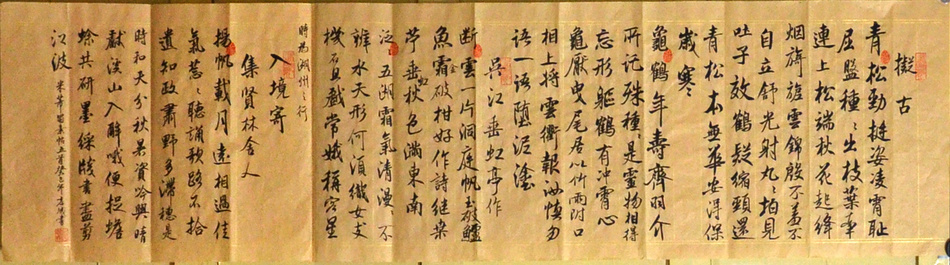 擬古
青松勁挺姿凌霄恥
屈盤種々出枝葉牽
連上松端秋花起絳
烟旖旎雲錦殷不羞不
自立舒光射丸々柏見
吐子效鶴疑縮頸還
青松本無華安得保
歲寒
龜鶴年壽齊羽介
所託殊種々是靈物相得
忘形軀鶴有沖霄心
龜厭曳尾居以竹兩附口
相上將雲衢報汝慎勿
語一語墮泥塗
吳江垂虹亭作
斷雲一片洞庭帆玉破鱸
魚霜金破柑好作詩継桑
苧垂虹秋色滿東南
泛々五湖霜氣清漫々不
辨水天形何須織女支
機石且戲常娥稱客星
時為湖州之行
入境寄
集賢林舍人
揚帆載月遠相過佳
氣蔥々聽誦歌路不拾
遺知政肅野多滯穗是
時和天分秋暑資吟興晴
獻溪山入醉哦便捉蟾
蜍共研墨綵牋書盡剪
江波
米芾蜀素帖五首癸巳年